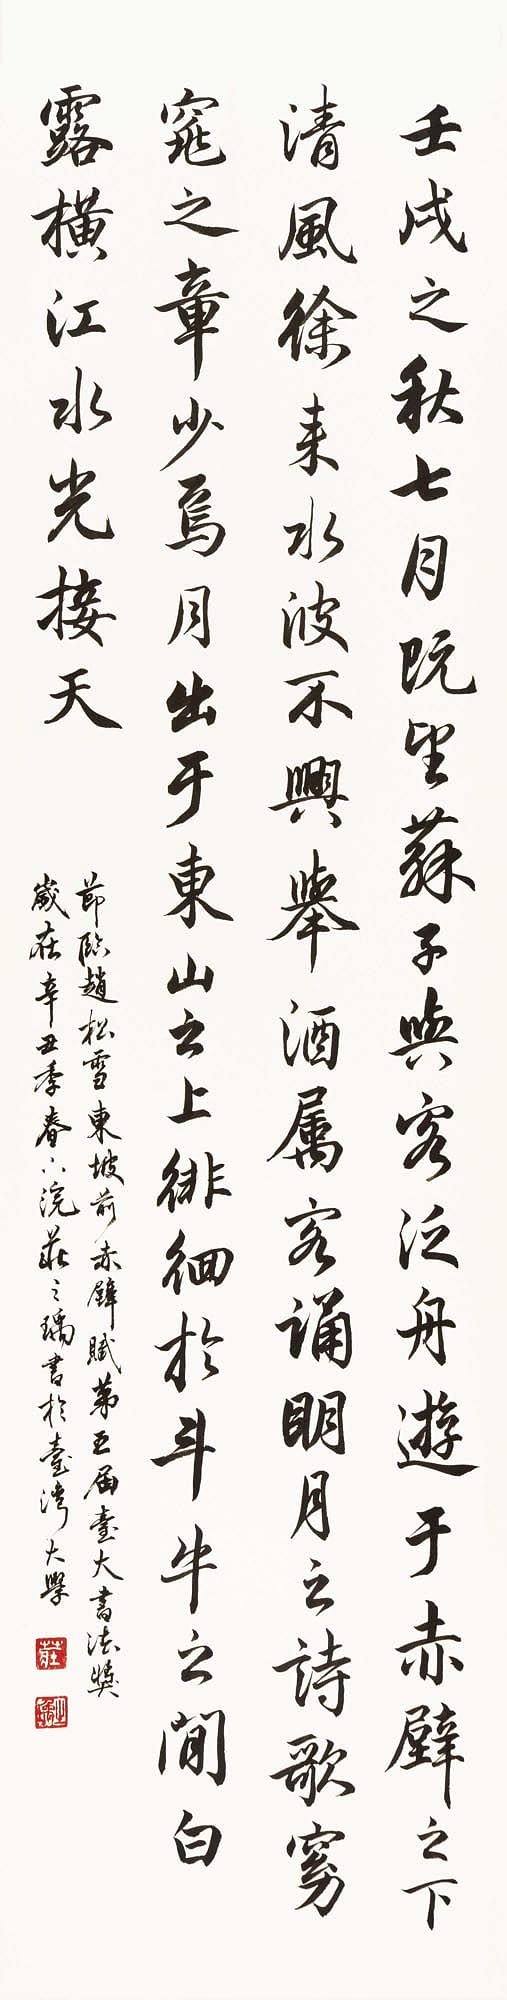 壬戌之秋七月既望蘇子與客泛舟遊于赤壁之下
清風徐来水波不興舉酒属客誦明月之詩歌窈
窕之章少焉月出于東山之上徘徊於斗牛之間白
露橫江水光接天
節臨趙松雪東坡前赤壁賦第五屆臺大書法獎
歲在辛丑季春下浣莊之瑀書於臺灣大學
莊